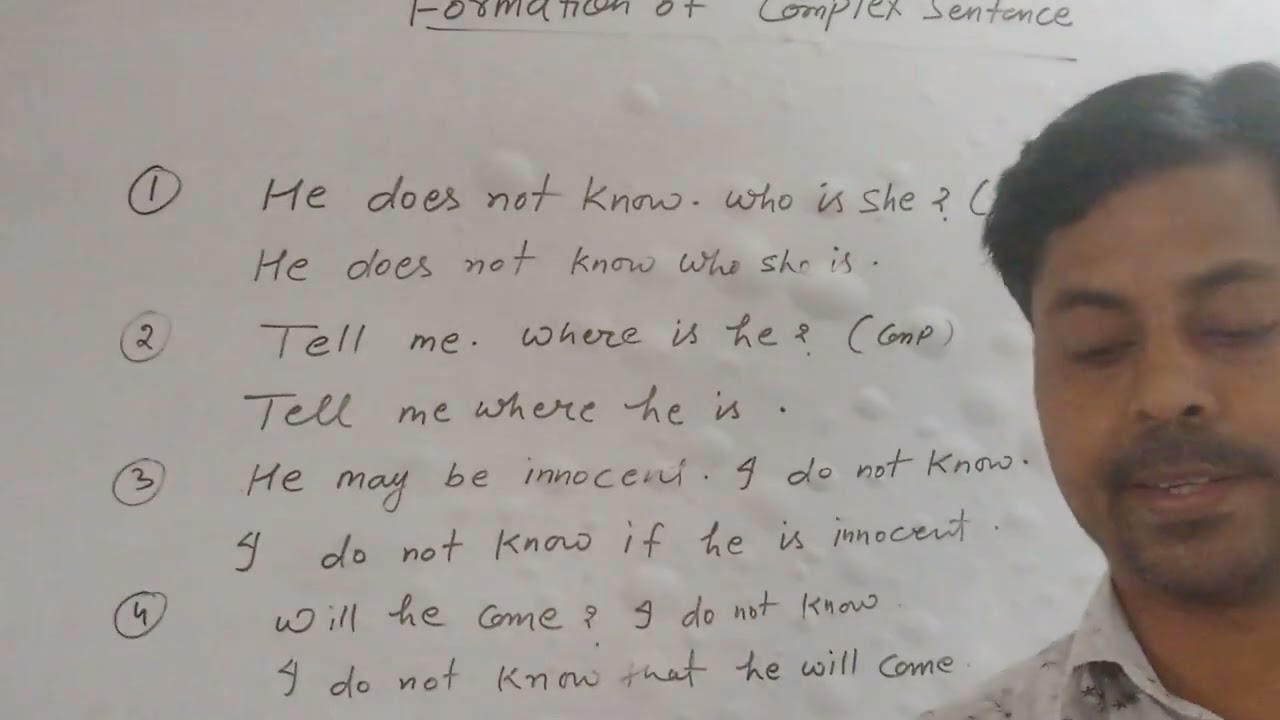 Formation of Complex Sentence
① He does not know. who is she? (
He does not know who she is.
② Tell me. where is he? (Comp)
Tell me where he is.
③ He may be innocent. I do not know.
I do not know if he is innocent.
④ will he come? I do not know.
I do not know that he will come.